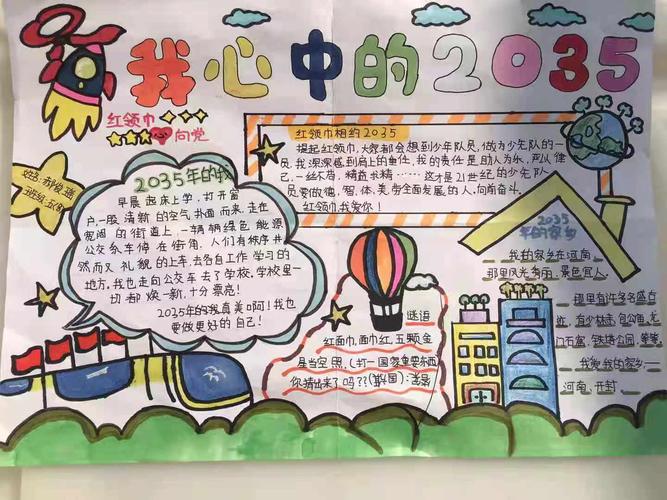 我心中的2035
红领巾
向党
姓名:郝
班级:五
2035年的我
早晨起床上学,打开窗
户,一股清新的空气扑面而来,走在
宽阔的街道上,一辆辆绿色能源
公交车停在街角,人们有秩序井
然而又礼貌的上车,去各自工作学习的
地方,我也走向公交车去了学校,学校里一
切都焕一新,十分漂亮!
2035年的我真美啊!我也
要做更好的自己!
红领巾相约2035
提起红领巾,大家都会想到少年队员,做为少先队的一
员,我深深感到肩上的重任,我的责任是助人为乐,严以律
己,一丝不苟,精益求精……这才是21世纪的少先队
员要做德,智,体,美,劳全面发展的人,向前奋斗。
红领巾,我爱你!
谜语
红面巾,面巾红,五颗金
星当空照,(打一国家重要东西)
你猜出来了吗??
2035
年的家乡
我的家乡在河南
那里风光秀丽,景色宜人。
那里有许多名盛古
迹,有少林寺,包公庙,龙
门石窟,铁塔公园,等等
我爱我的家乡—
河南,开封